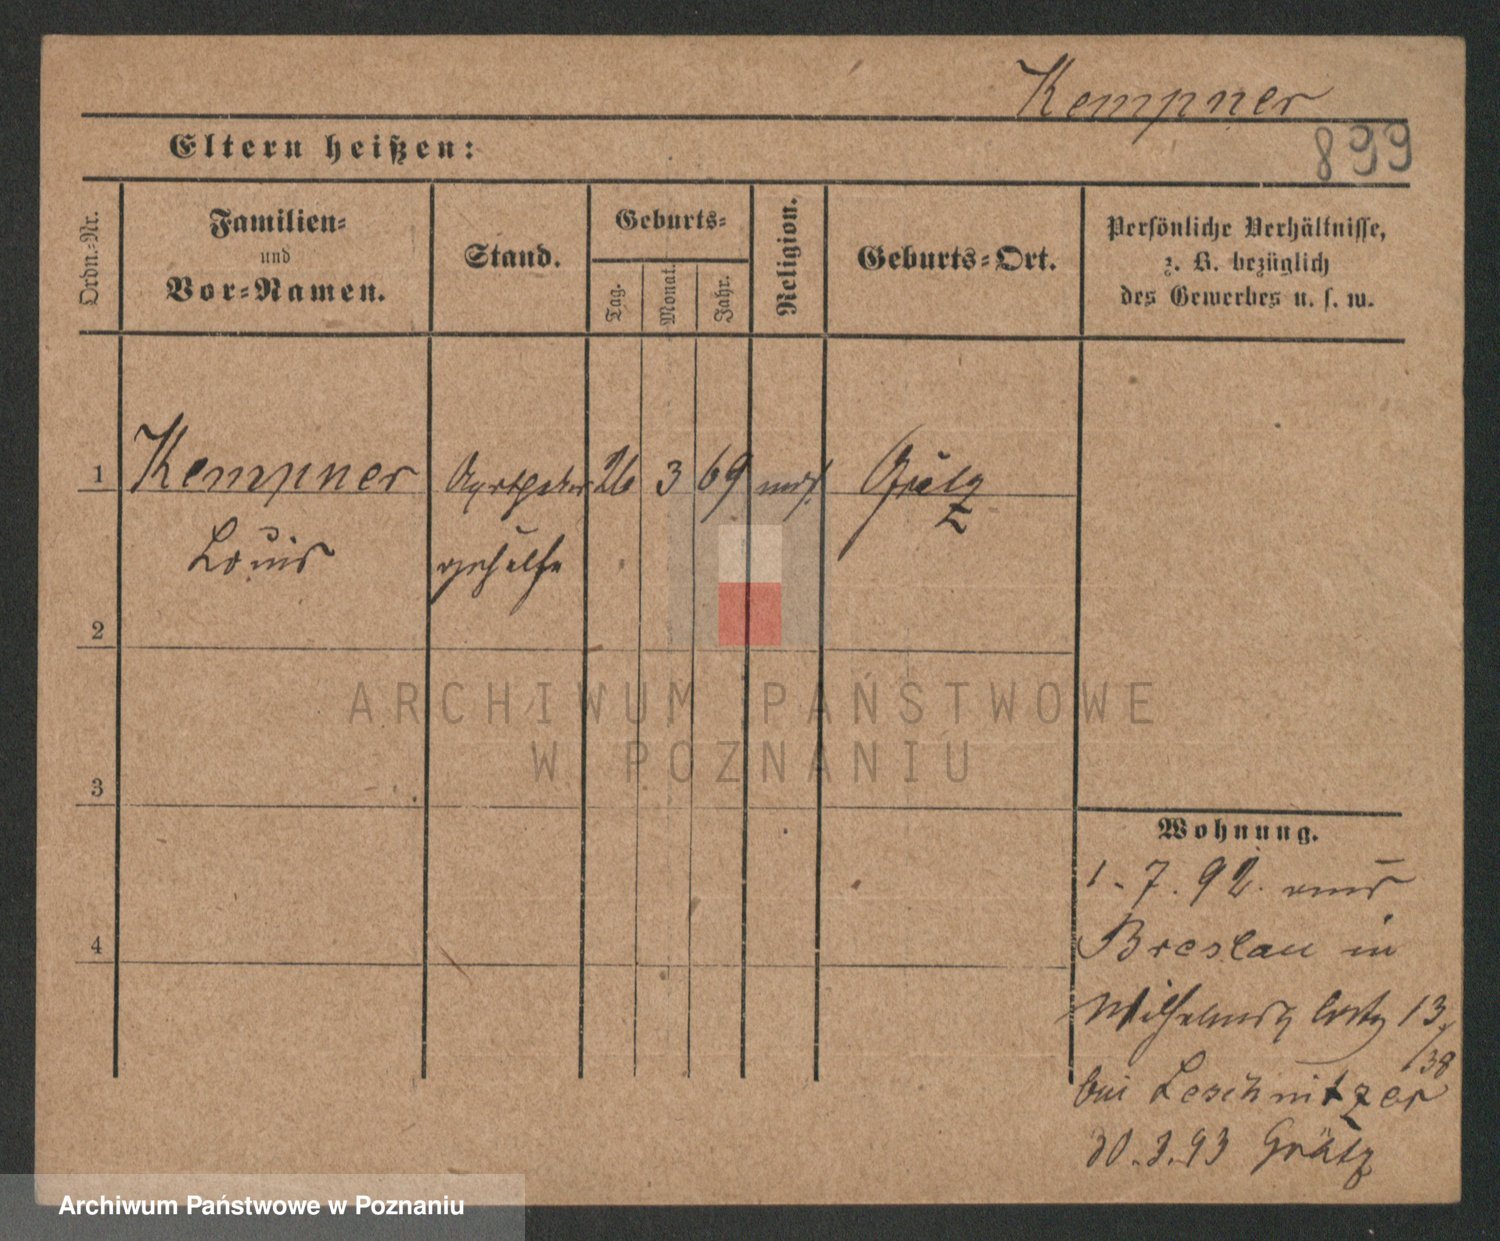 Kempner
899
Eltern heißen:
Ordn.-Nr.
Familien-
und
Vor-Namen.
Stand.
Geburts-
Tag.
Monat.
Jahr.
Religion.
Geburts-Ort.
Persönliche Verhältnisse,
z. B. bezüglich
des Gewerbes u. s. w.
1 Kempner 26 3 69 mos.
Louis gehülfe
2
3
4
Wohnung.
1. 7. 92. aus
Breslau in
13/38
bei Leschnitzer
30. 3. 93 Grätz
ARCHIWUM PAŃSTWOWE
W POZNANIU
Archiwum Państwowe w Poznaniu